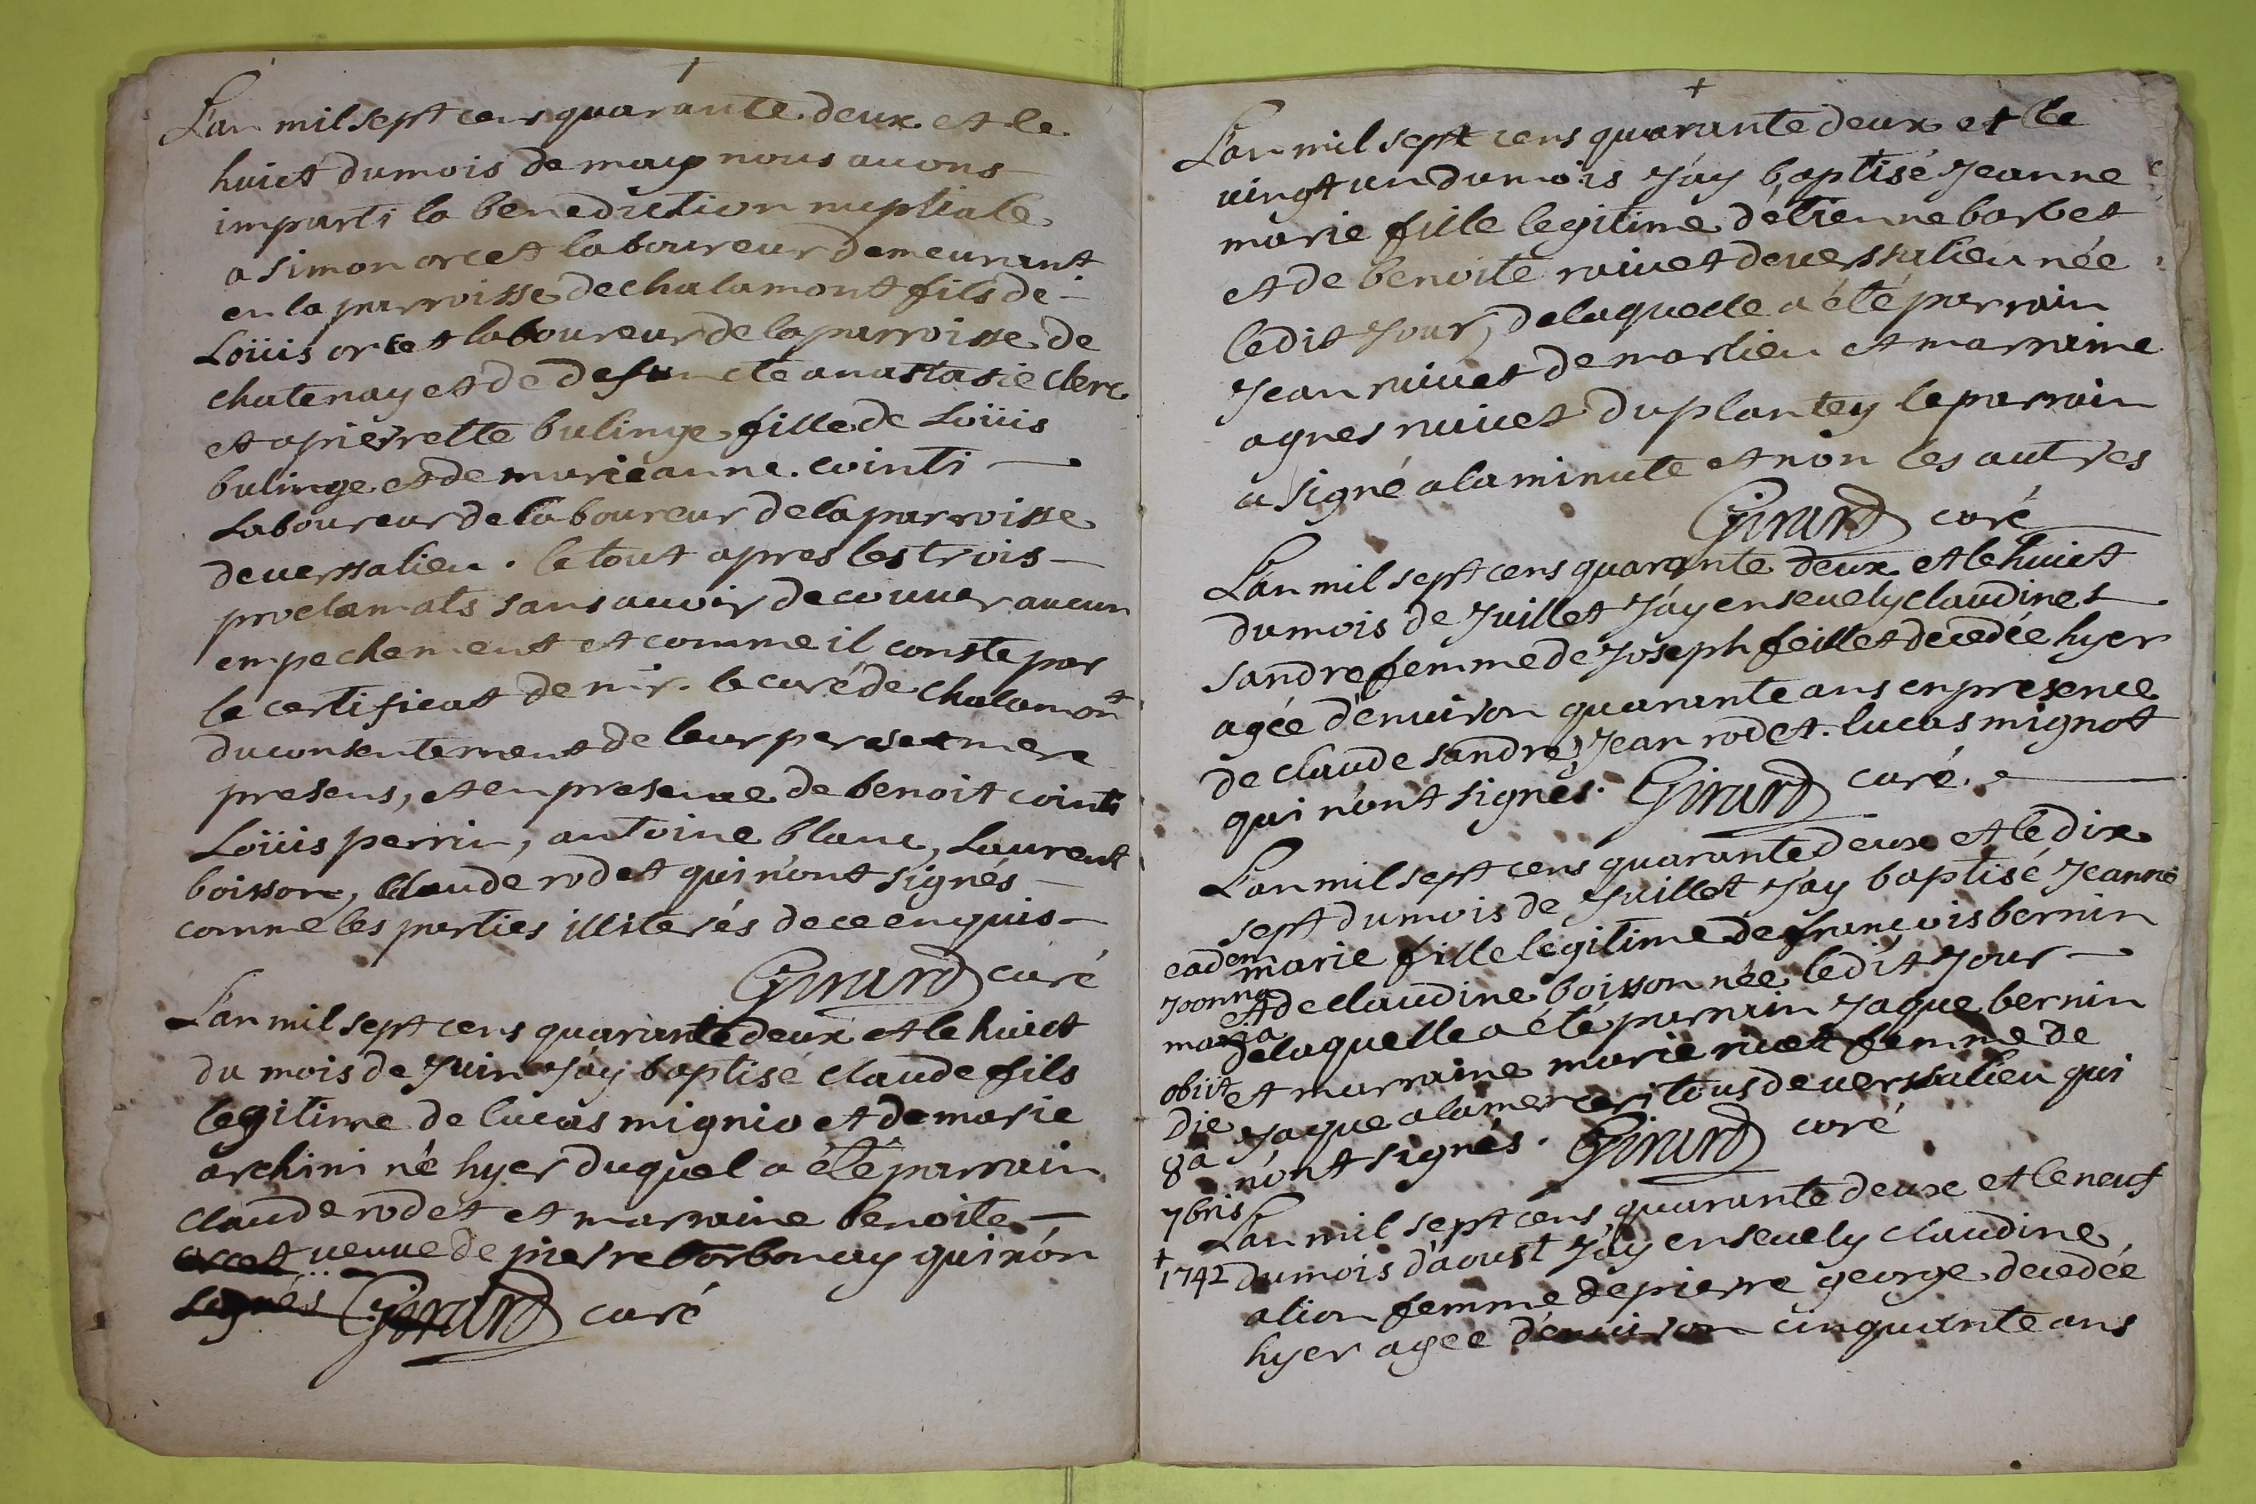 L'an mil sept cens quarante deux et le
huict du mois de may nous avons
imparti la benediction nuptiale
a simon orcet laboureur demeurant
en la parroisse de chalamont fils de
Loüis orcet laboureur de la parroisse de
chatenay et de defuncte anastasie clerc
et a pierrette bulinge fille de Loüis
bulinge et de marieanne cointi
Laboureur de laboureur de la parroisse
de versalieu. le tout apres les trois
proclamats sans avoir decouver aucun
empechement et comme il conste par
le certificat de mr. le curé de chalamont
du consentement de leur peres et mere
presens, et en presence de benoit cointi
Loüis perrin, antoine blanc, Laurent
boisson, Claude rodet qui n'ont signés
comme les parties illiterés de ce enquis
Girard curé
L'an mil sept cens quarante deux et le huict
du mois de Juin J'ay baptisé claude fils
legitime de lucas mignio et de marie
archini né hyer duquel a été parrain
claude rodet et marraine benoite
orcet veuve de pierre borbonay qui n'on
signés Girard curé
+
L'an mil sept cens quarante deux et le
vingt un du mois J'ay baptisé Jeanne
marie fille legitime d'etienne barbet
et de benoite rivet de versalieu née
ledit Jour, de laquelle a été parrain
Jean rivet de marlieu et marraine
agnes rivet du plantey le parrain
a signé a la minute et non les autres
Girard curé
L'an mil sept cens quarante deux et le huict
du mois de Juillet J'ay ensevely claudine
sandre femme de Joseph feillet decedée hyer
agée d'environ quarante ans en presence
de claude sandre, Jean rodet. lucas mignot
qui n'ont signés. Girard curé.
L'an mil sept cens quarante deux et le dix
sept du mois de Juillet J'ay baptisé Jeanne
marie fille legitime de françois bernin
et de claudine boisson née ledit Jour
de laquelle a été parrain Jaque bernin
et marraine marie rivet femme de
Jaque alamerceri tous de versalieu qui
n'ont signés. Girard curé
eadem
Joanna
maria
obiit
Die
8a
7bris
+
1742
L'an mil sept cens quarante deux et le neuf
du mois d'aoust J'ay ensevely claudine
alion femme de pierre george decedée
hyer agée d'environ cinquante ans